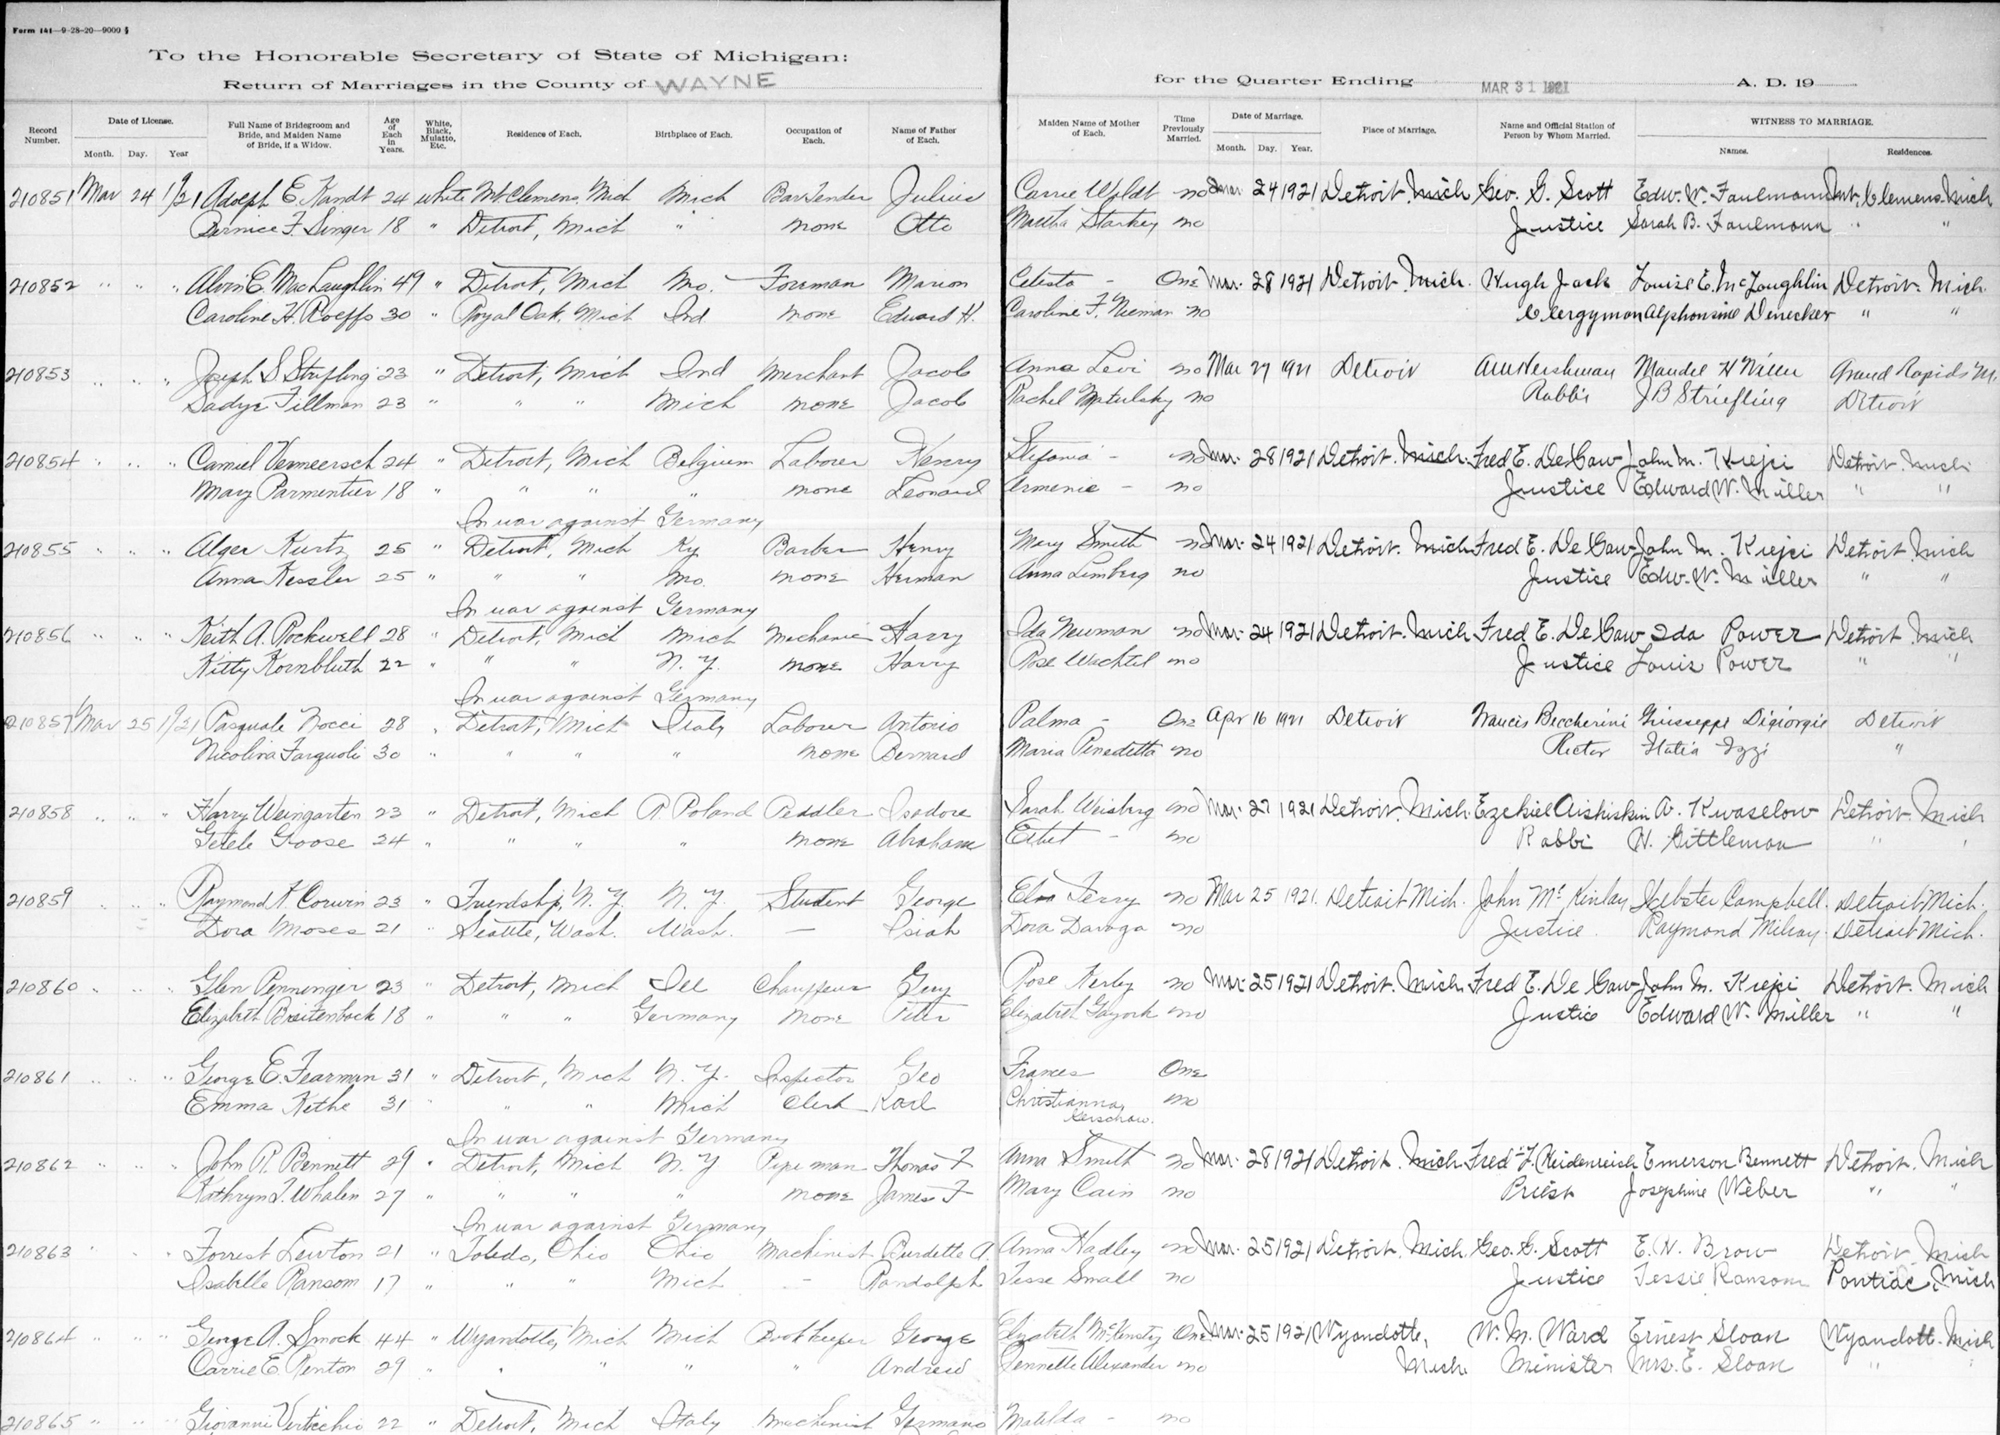 Form 141—9-28-20—9000
To the Honorable Secretary of State of Michigan:
Return of Marriages in the County of WAYNE for the Quarter Ending MAR 31 1921 A. D. 19
Record Number. Date of License. Month. Day. Year Full Name of Bridegroom and Bride, and Maiden Name of Bride, if a Widow. Age of Each in Years. White, Black, Mulatto, Etc. Residence of Each. Birthplace of Each. Occupation of Each. Name of Father of Each. Maiden Name of Mother of Each. Time Previously Married. Date of Marriage. Month. Day. Year. Place of Marriage. Name and Official Station of Person by Whom Married. WITNESS TO MARRIAGE. Names. Residences.
210851 Mar 24 1921 Adolph E. Kandt 24 white Mt Clemens, Mich Mich BarTender Julius Carrie no Mar 24 1921 Detroit, Mich Geo. G. Scott Edw. W. Faulmann Mt. Clemens. Mich
Bernice F. Singer 18 " Detroit, Mich " none Otto Martha Starkey no Justice Sarah B. Faulmann " "
210852 " " " Alvin E. MacLaughlin 49 " Detroit, Mich Mo. Foreman Marion Celesta - One Mar. 28 1921 Detroit. Mich. Hugh Jack Louise E. McLaughlin Detroit. Mich.
Caroline H. Roeffs 30 " Royal Oak, Mich Ind none Edward H. Caroline F. Nieman no Clergyman Alphonsine Denecker " "
210853 " " " Joseph S Strifling 23 " Detroit, Mich Ind Merchant Jacob Anna Levi no Mar 27 1921 Detroit AM Hershman Mandel H Grand Rapids M.
Sadye Tillman 23 " " " Mich none Jacob Rachel no Rabbi J B Striefling Detroit
210854 " " " Camiel Vermeersch 24 " Detroit, Mich Belgium Laborer Henry Stefania - no Mar. 28 1921 Detroit. Mich. Fred E. DeGaw John M. Krejci Detroit. Mich
Mary Parmentier 18 " " " " none Leonard Armenie - no Justice Edward W. Miller " "
In war against Germany
210855 " " " Alger Kurtz 25 " Detroit, Mich Ky Barber Henry Mary Smith no Mar. 24 1921 Detroit. Mich Fred E. De Gaw John M. Krejci Detroit. Mich
Anna Kessler 25 " " " Mo. none Herman Anna Limberg no Justice Edw. W. Miller " "
In war against Germany
210856 " " " Keith A. Rockwell 28 " Detroit, Mich Mich Mechanic Harry Ida Newman no Mar. 24 1921 Detroit. Mich Fred E. De Gaw Ida Power Detroit. Mich
Kitty Kornbluth 22 " " " N. Y. none Harry Rose Wachtel no Justice Louis Power " "
In war against Germany
210857 Mar 25 1921 Pasquale Nocci 28 " Detroit, Mich Italy Laborer Antonio Palma - One Apr 16 1921 Detroit Francis Beccherini Giuseppe Digiorgio Detroit
Nicolina 30 " " " none Bernard Maria Benedetta no Rector Izzi "
210858 " " " Harry Weingarten 23 " Detroit, Mich R Poland Peddler Isadore Sarah Weisberg no Mar. 27 1921 Detroit. Mich. Ezekiel Aishiskin A. Kwaselow Detroit. Mich
Goose 24 " " " " none Abraham - no Rabbi H. Gittleman " "
210859 " " " Raymond F. Corwin 23 " Friendship, N. Y. N. Y. Student George Elva Terry no Mar 25 1921. Detroit Mich. John McKinlay Webster Campbell. Detroit Mich.
Dora Moses 21 " Seattle, Wash. Wash. — Isiah Dora no Justice Raymond Detroit Mich.
210860 " " " Glen Penninger 23 " Detroit, Mich Ill Chauffeur Rose Kerby no Mar. 25 1921 Detroit. Mich Fred E. De Gaw John M. Krejci Detroit. Mich
Elizabeth Breitenback 18 " " " Germany none Peter Elizabeth no Justice Edward W. Miller " "
210861 " " " George E. Fearman 31 " Detroit, Mich N. Y. Inspector Geo Frances One
Emma Kethe 31 " " " Mich Clerk Karl Christianna Kerschow. no
In war against Germany
210862 " " " John R. Bennett 29 " Detroit, Mich N. Y Pipe man Thomas F Anna Smith no Mar. 28 1921 Detroit. Mich Fred J. Heidenreich Emerson Bennett Detroit. Mich
Kathryn I. Whalen 27 " " " " none James F Mary Cain no Priest Josephine Weber " "
In war against Germany
210863 " " " Forrest Lewton 21 " Toledo, Ohio Ohio Machinist Burdette A. Anna Hadley no Mar. 25 1921 Detroit. Mich. Geo. G. Scott E. H. Brow Detroit. Mich
Isabelle Ransom 17 " " " Mich - Randolph Jesse Small no Justice Tessie Ransom Pontiac, Mich
210864 " " " George A. Smock 44 " Wyandotte, Mich Mich Bookkeeper George Elizabeth McKinstry One Mar. 25 1921 Wyandotte, W. M. Ward Ernest Sloan Wyandott. Mich
Carrie E. Renton 29 " " " " " Andrew Jennette Alexander no Mich Minister Mrs. E. Sloan " "
210865 " " " Giovanni Verticchio 22 " Detroit, Mich Italy Machinist Germano Matilda - no